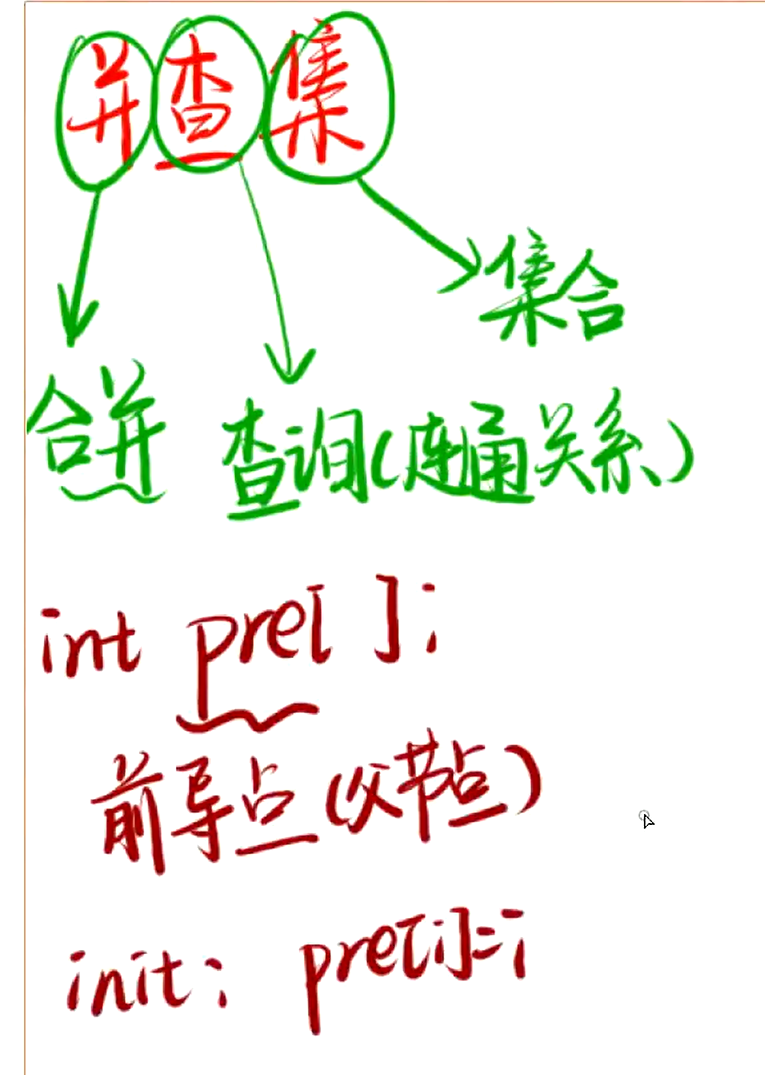 并查集
集合
合并 查询(连通关系)
int pre[ ];
前导点(父节点)
init: pre[i]=i